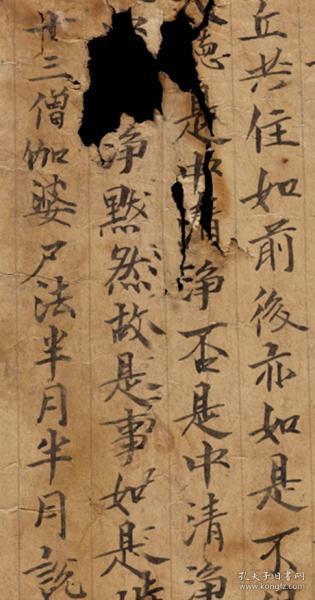 丘共住如前後亦如是不
德是中清淨不是中清淨否是中清淨
淨黙然故是事如是
卅三僧伽婆尸法半月半月説
孔夫子旧书网